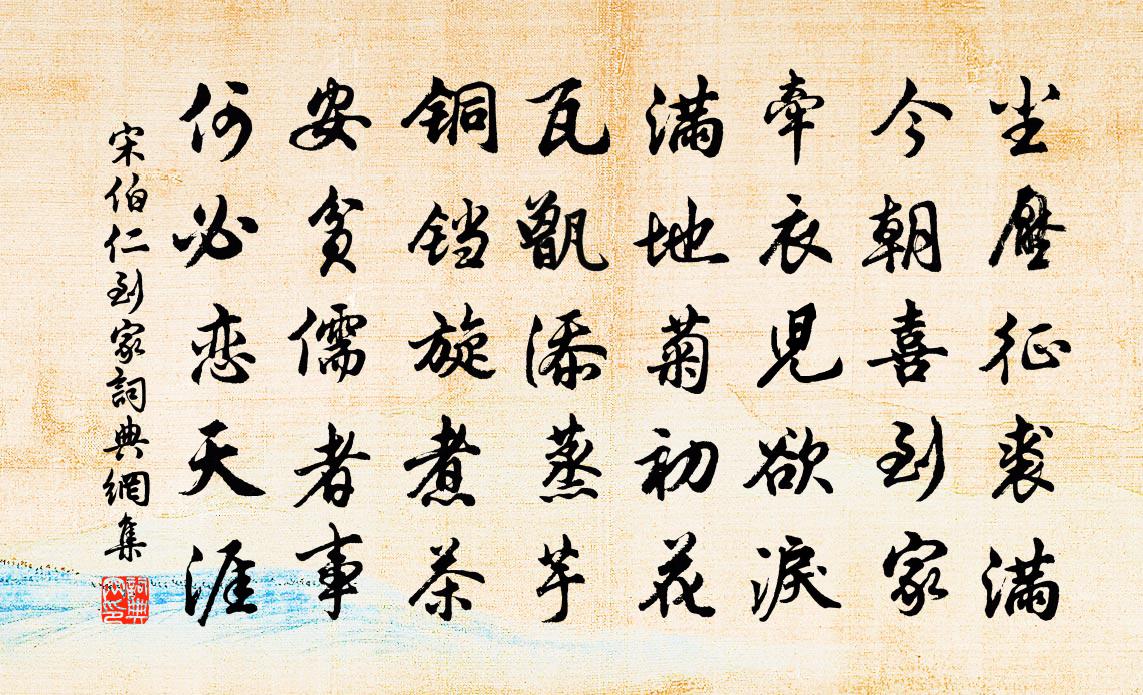 尘壓征裘满
今朝喜到家
牵衣児欲淚
满地菊初花
瓦甑添蒸芋
铜铛旋煮茶
安贫儒者事
何必恋天涯
宋伯仁到家詞典網集